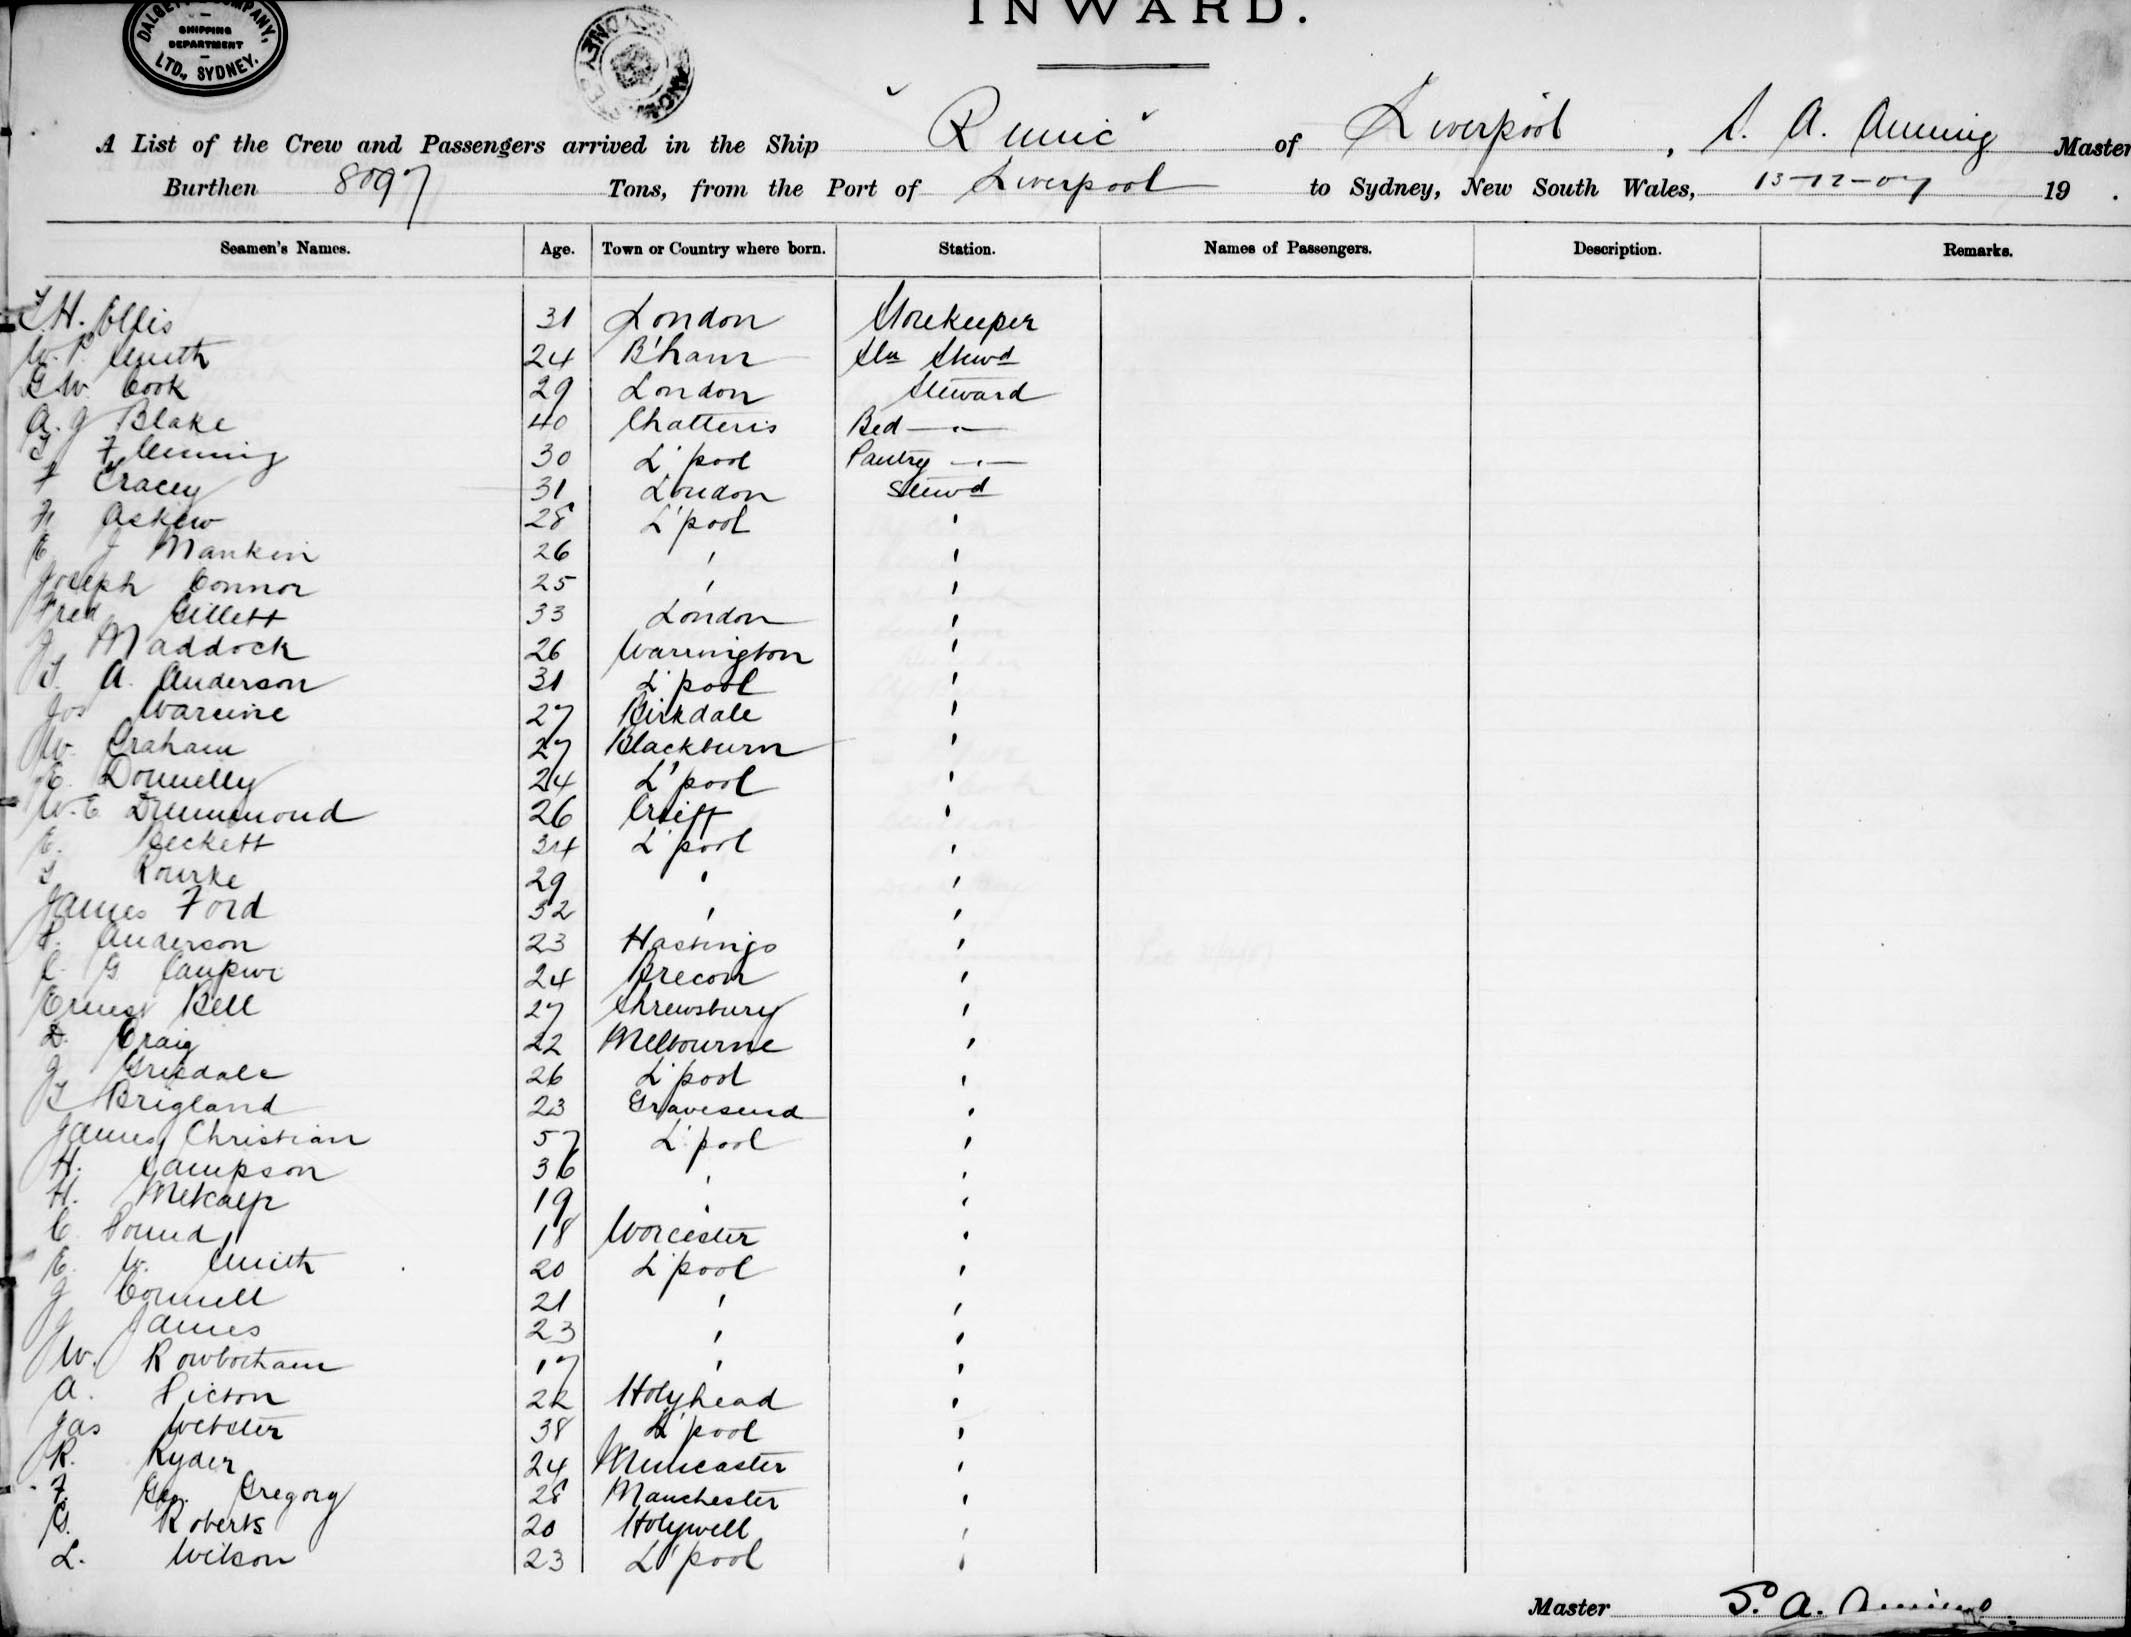 DALGETY & COMPANY,
SHIPPING
DEPARTMENT
LTD., SYDNEY.
SYDNEY
INWARD.
A List of the Crew and Passengers arrived in the Ship "Runic" of Liverpool, S. A. Anning Master
Burthen 8097 Tons, from the Port of Liverpool to Sydney, New South Wales, 13-12-07 19 .
Seamen's Names. Age. Town or Country where born. Station. Names of Passengers. Description. Remarks.
T. H. Ellis 31 London Storekeeper
W. P. Smith 24 B'ham Stewd
G W. Cook 29 London Steward
A. J Blake 40 Chatteris Bed — " —
T Fleming 30 L'pool Pantry — " —
F Tracey 31 London Stewd
H Askew 28 L'pool '
E J Mankin 26 ' '
Joseph Connor 25 ' '
Fred Gillett 33 London '
J Maddock 26 Warrington '
T. A. Anderson 31 L'pool '
Jos Wareine 27 Birkdale '
W. Graham 27 Blackburn '
E. Donnelly 24 L'pool '
W. E Drummond 26 Crieff '
E. Beckett 34 L'pool '
T Rourke 29 ' '
James Ford 32 ' '
P. Anderson 23 Hastings '
C. G 24 Brecon '
Ernest Bell 27 Shrewsbury '
D. Craig 22 Melbourne '
J Grisdale 26 L'pool '
T Brigland 23 Gravesend '
James Christian 57 L'pool '
H. Sampson 36 ' '
H. Metcalf 19 ' '
C. Pound 18 Worcester '
E. W. Smith 20 L'pool '
J Connell 21 ' '
J James 23 ' '
W. Rowbotham 17 ' '
A. Picton 22 Holyhead '
Jas Webster 38 L'pool '
R. Ryder 24 Muncaster '
F. Geo. Gregory 28 Manchester '
G. Roberts 20 Holywell '
L. Wilson 23 L'pool '
Master S. A. Anning